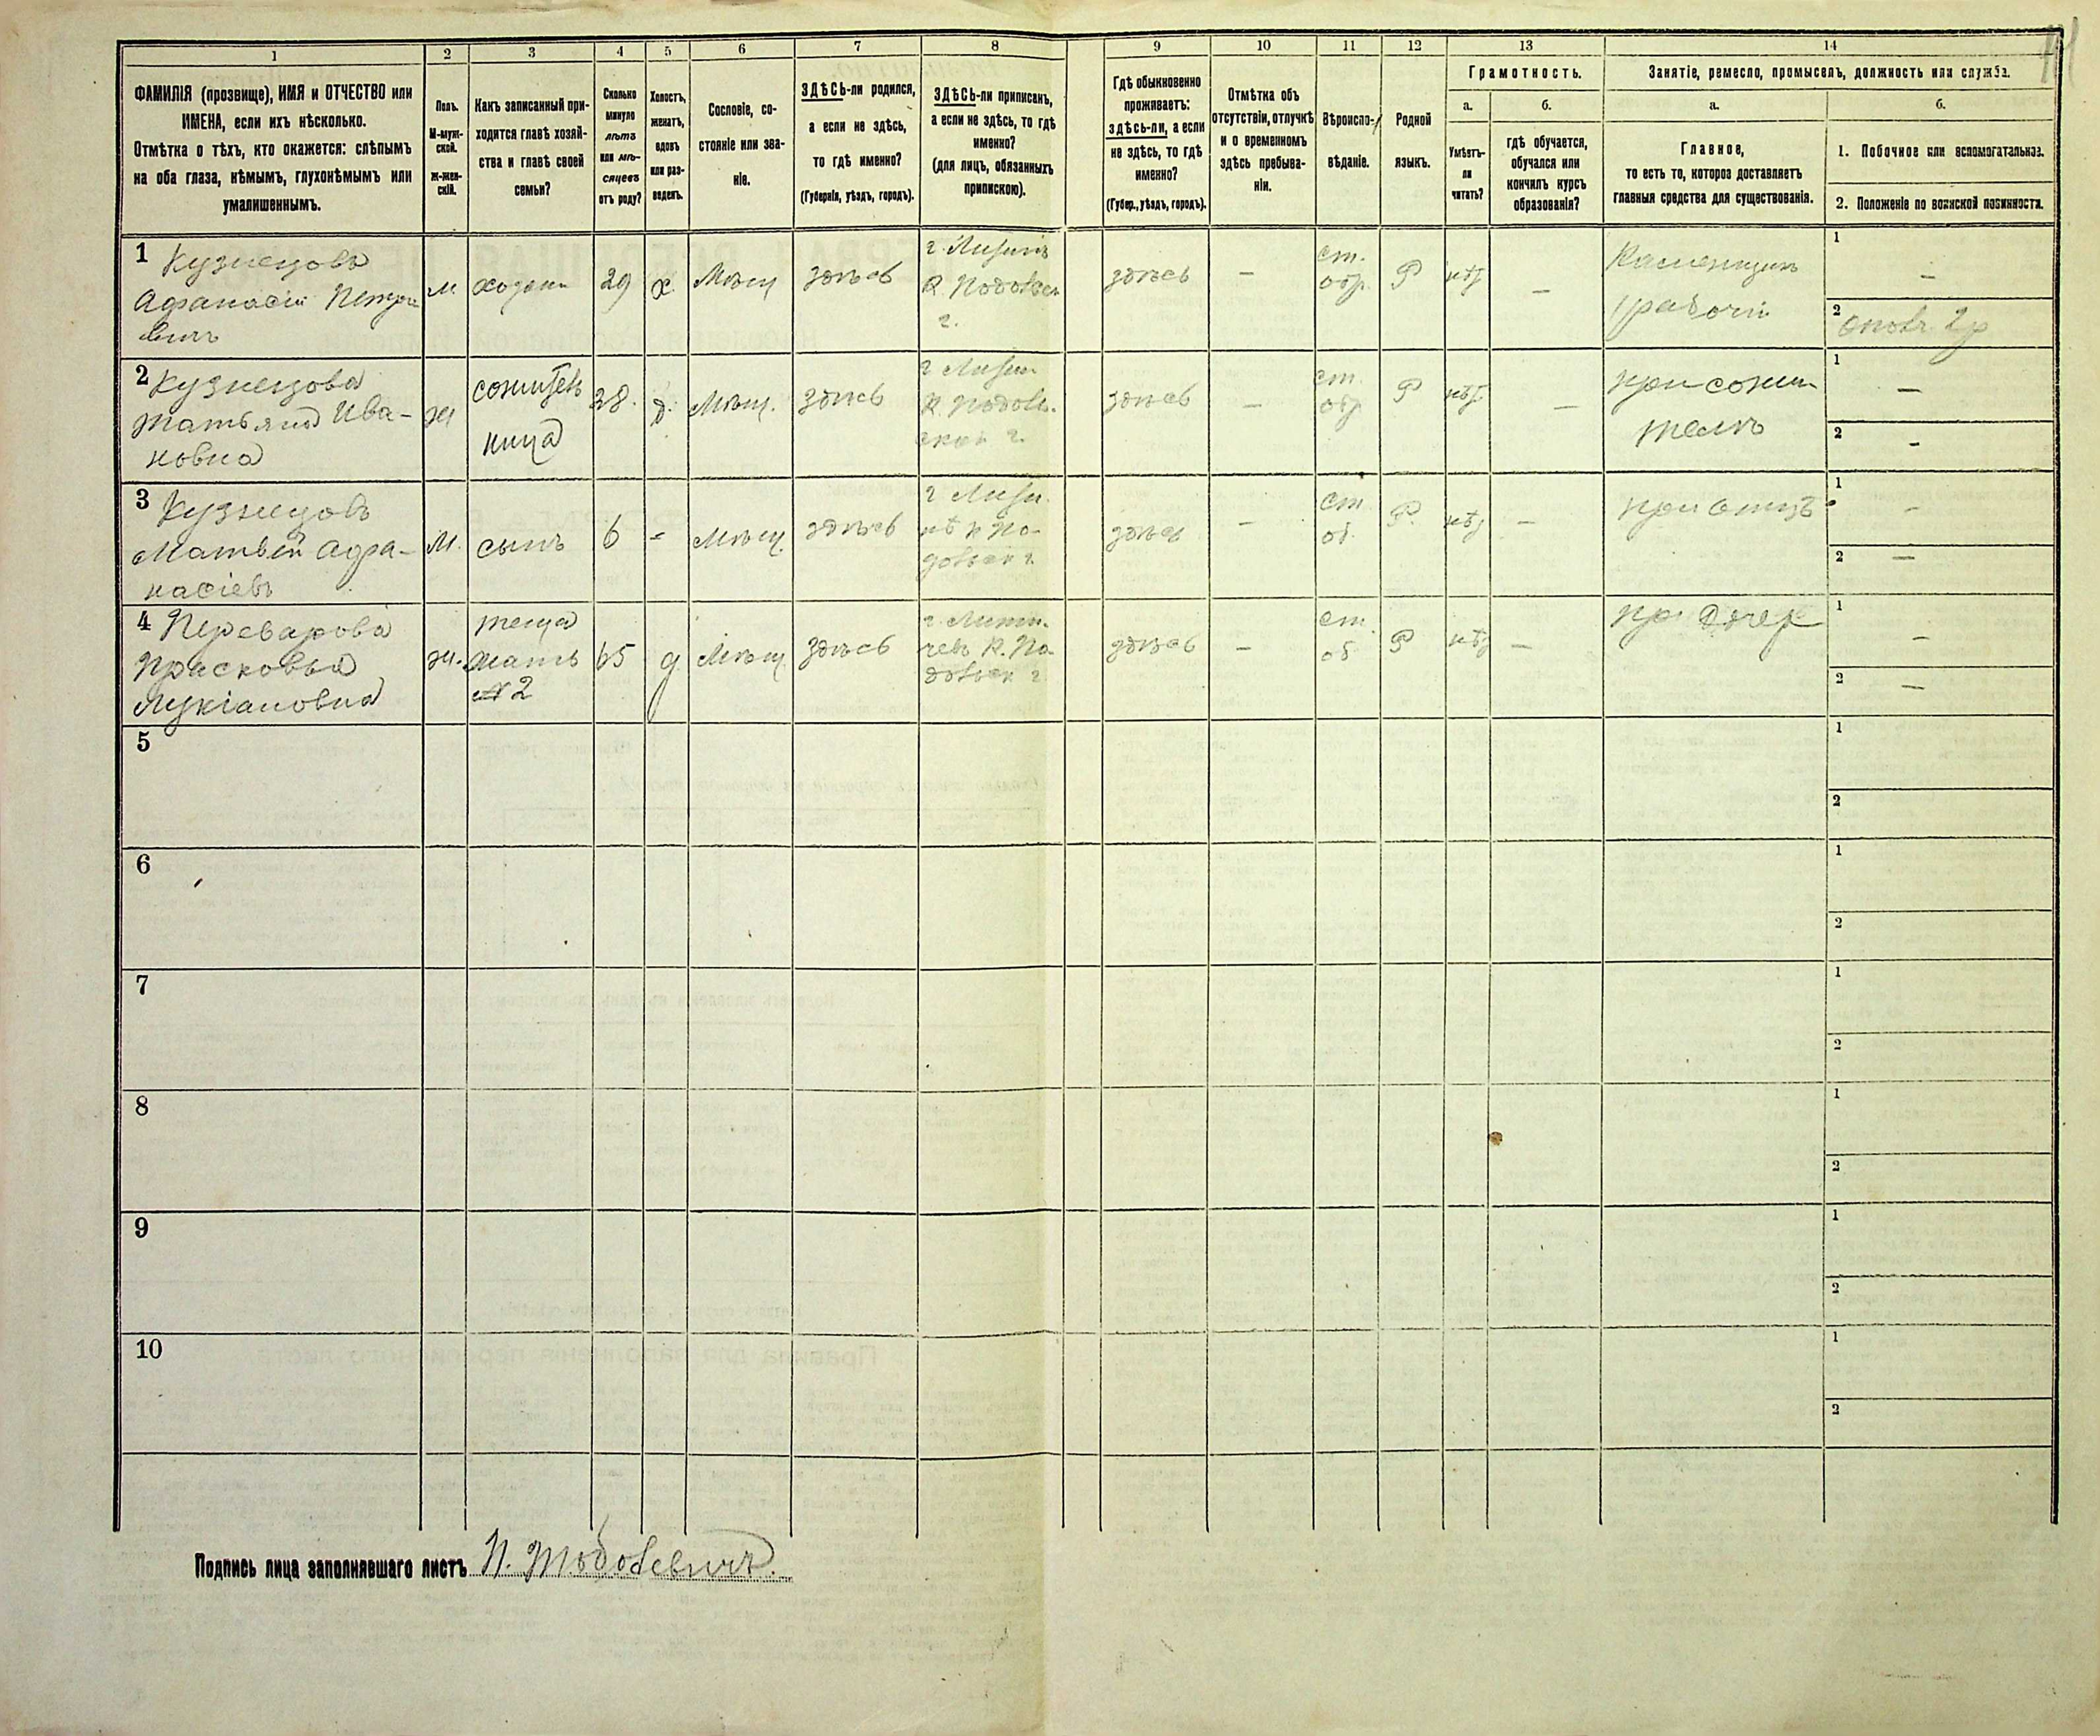 1 2 3 4 5 6 7 8 9 10 11 12 13 14
ФАМИЛІЯ (прозвище), ИМЯ и ОТЧЕСТВО или
ИМЕНА, если ихъ нѣсколько.
Отмѣтка о тѣхъ, кто окажется: слѣпымъ
на оба глаза, нѣмымъ, глухонѣмымъ или
умалишеннымъ.
Полъ.
М-муж-
ской.
ж-жен-
скій.
Какъ записанный при-
ходится главѣ хозяй-
ства и главѣ своей
семьи?
Сколько
минуло
лѣтъ
или мѣ-
сяцевъ
отъ роду?
Холостъ,
женатъ,
вдовъ
или раз-
веденъ.
Сословіе, со-
стояніе или зва-
ніе.
ЗДѢСЬ-ли родился,
а если не здѣсь,
то гдѣ именно?
(Губернія, уѣздъ, городъ).
ЗДѢСЬ-ли приписанъ,
а если не здѣсь, то гдѣ
именно?
(для лицъ, обязанныхъ
припискою).
Гдѣ обыкновенно
проживаетъ:
здѣсь-ли, а если
не здѣсь, то гдѣ
именно?
(Губер., уѣздъ, городъ).
Отмѣтка объ
отсутствіи, отлучкѣ
и о временномъ
здѣсь пребыва-
ніи.
Вѣроиспо-
вѣданіе.
Родной
языкъ.
Грамотность.
а. б.
Умѣетъ-
ли
читать?
гдѣ обучается,
обучался или
кончилъ курсъ
образованія?
Занятіе, ремесло, промыселъ, должность или служба.
а. б.
Главное,
то есть то, которое доставляетъ
главныя средства для существованія.
1. Побочное или вспомогательное.
2. Положеніе по воинской повинности.
1 Кузнецовъ
Афанасій Петро
вичъ
м
хозяин
29
х
Мѣщ
здѣсь
здѣсь
—
ст.
обр.
Р
нѣт
—
Каменщикъ
рабочій
1
—
2
2 Кузнецова
Татьяна Ива-
новна
ж
сожитель
ница
28.
д.
Мѣщ.
здѣсь
здѣсь
—
ст.
обр
Р
нѣт
—
при сожи
телѣ
1
—
2
-
3 Кузнецовъ
Матвѣй Афа-
насіевъ
м.
сынъ
6
-
Мѣщ.
здѣсь
здѣсь
—
ст
об.
Р.
нѣт
—
при отцѣ
1
-
2
—
4
Прасковья
Лукіановна
ж.
теща
мать
№ 2
65
Мѣщ
здѣсь
здѣсь
—
ст.
об
Р
нѣт
—
1
—
2
—
5
1
2
6
1
2
7
1
2
8
1
2
9
1
2
10
1
2
Подпись лица заполнявшаго листъ